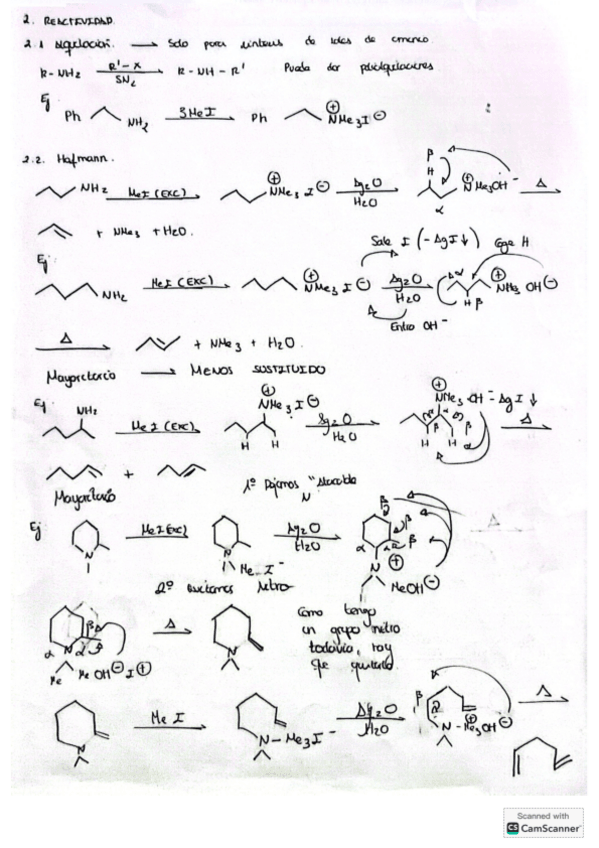 2. REACTIVIDAD.
2.1 Alquilación. → Solo para síntesis de sales de amonio
R-NH2 R'-X SN2 R-NH-R' Puede dar polialquilaciones
Ej Ph NH2 3MeI Ph NMe3I
2.2. Hofmann.
NH2 MeI (EXC) NMe3 I Ag2O H2O β H α NMe3OH Δ
+ NMe3 + H2O.
Sale I (-AgI↓) Coge H
Ej NH2 MeI (EXC) NMe3 I Ag2O H2O α H β NMe3 OH
Entra OH-
Δ + NMe3 + H2O.
Mayoritario → MENOS SUSTITUIDO
Ej NH2 MeI (EXC) NMe3 I H H Ag2O H2O NMe3 OH - AgI↓ β H H α β Δ
+
Mayoritario
1º Dejamos
N
Ej N MeI EXC N Me I- Ag2O H2O β β β α N MeOH Δ
2º
N β α α Me MeOH I Δ N
Como tengo
un grupo nitro
todavía, hay
que quitarlo.
N MeI N-Me3I- Ag2O H2O β α N-Me3OH Δ
Scanned with
CS CamScanner